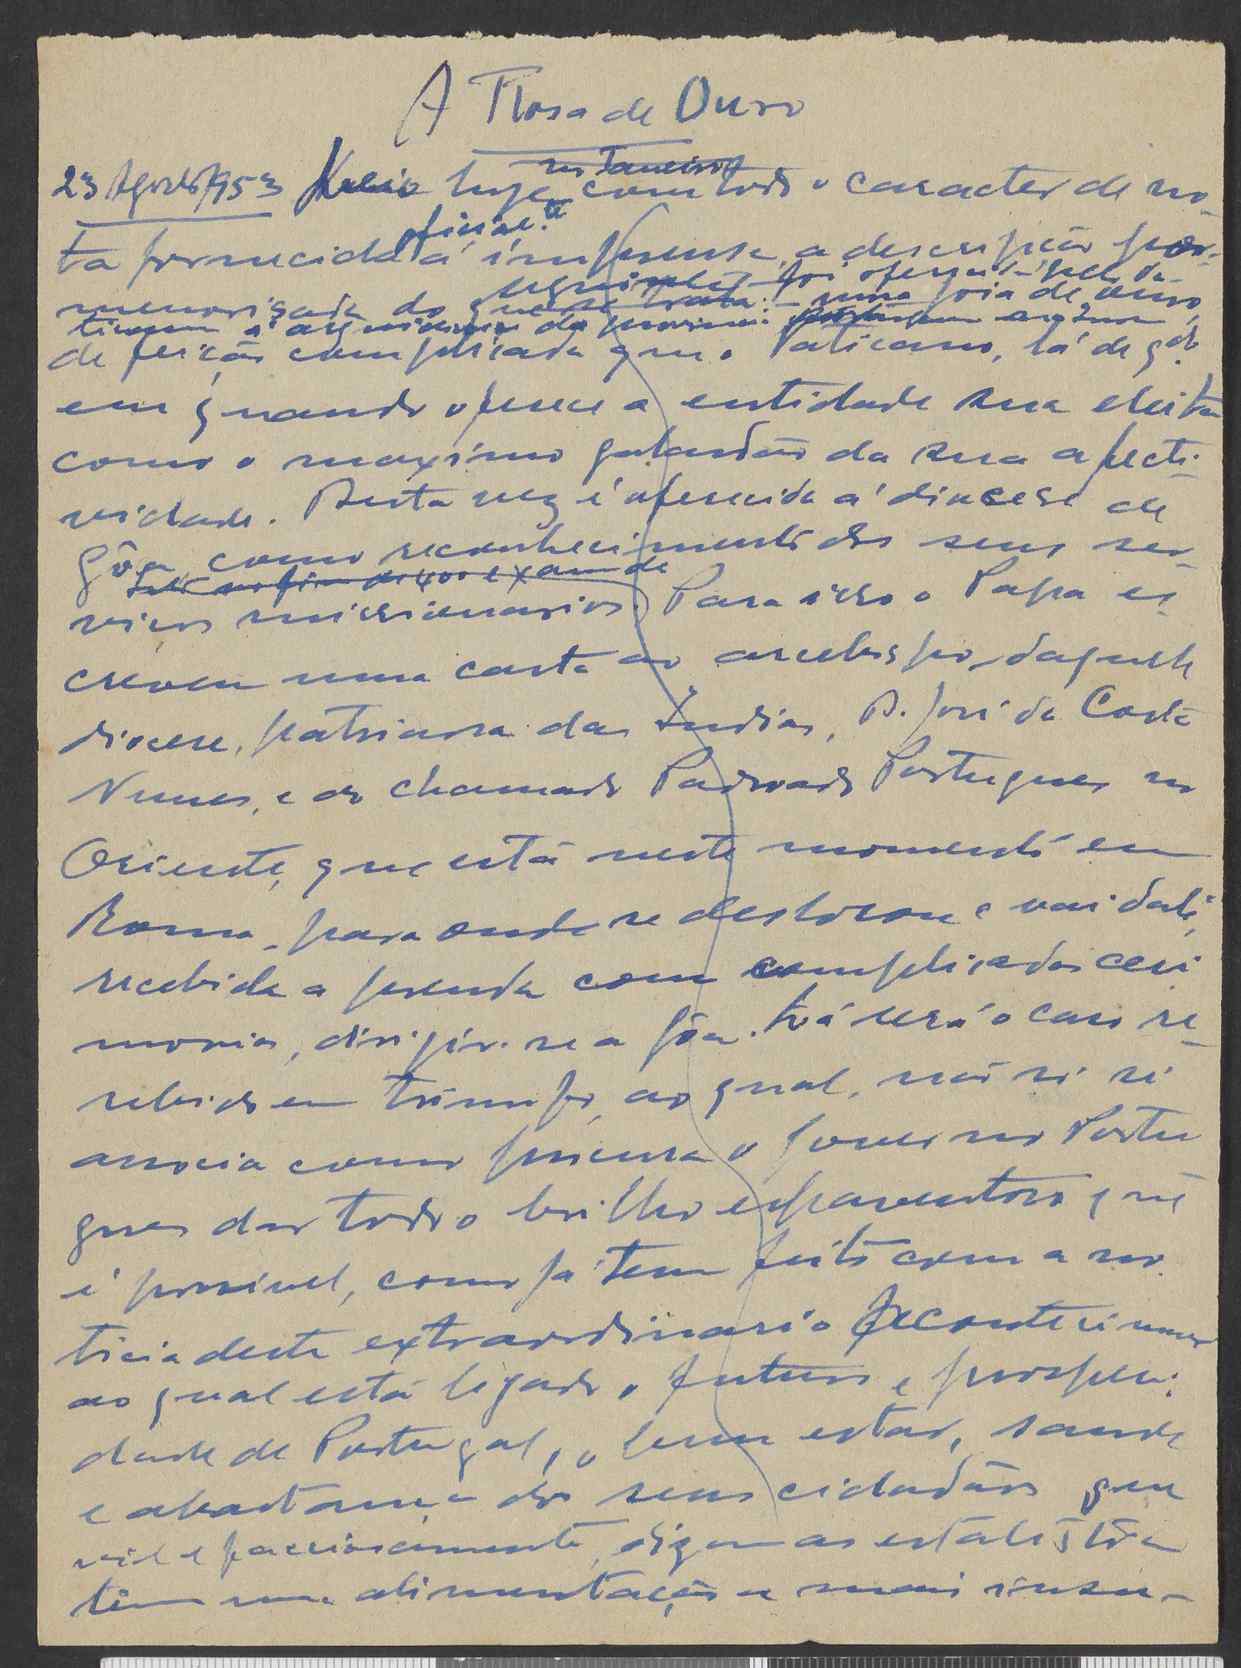 A Rosa de Ouro
23 Agosto 1953 Veio hoje com todo o caracter de no-
ta fornecida oficial.te á imprensa, a descrição por-
menorisada do uma joia de ouro,
de feição complicada que o Vaticano, lá de qdo
em quando oferece a entidade sua eleita
como o maximo galardão da sua afecti-
vidade. Desta vez é oferecida á diocese de
Gôa como reconhecimento dos seus ser-
viços missionarios. Para isso o Papa es-
creveu uma carta ao arcebispo daquela
diocese, patriarca das Indias, D. José da Costa
Nunes, e ao chamado Padroado Portugues no
Oriente, que está neste momento em
Roma, para onde se deslocou e vai dali,
recebida a prenda com complicadas ceri
monias, dirigir-se a Gôa. Lá será o caso re-
cebido em triunfo, ao qual, não só se
associa como procura o governo Portu
gues dar todo o brilho espaventoso que
é possivel, como já tem feito com a no
ticia deste extraordinario acontecimento
ao qual está ligado o futuro e prosperi-
dade de Portugal, o bem estar, saude
e abastança dos seus cidadãos que
vil e facciosamente, digam as estatisticas
têm uma alimentação a mais insu-